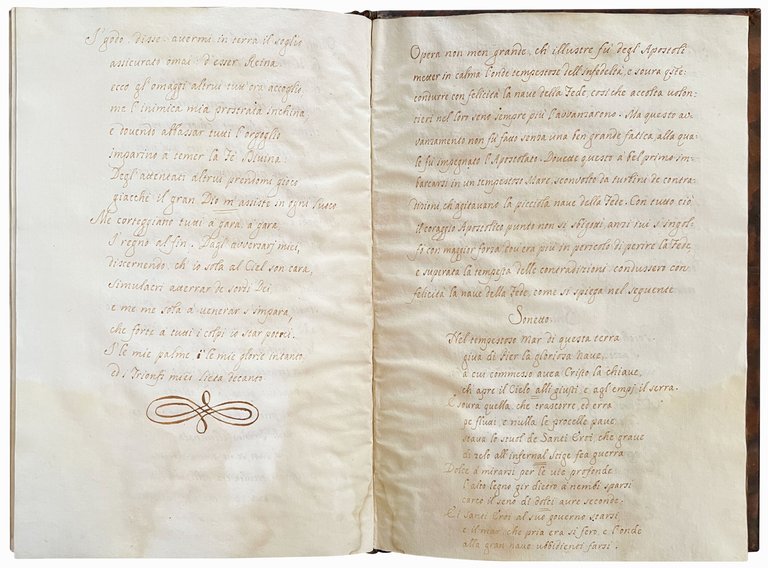 I godo, disse, avermi in terra il soglio
assicurato omai d'esser Reina.
ecco gl'omaggi altrui tuui ora accoglio
me l'inimica mia prostrata inchina,
e dovendo abbassar tuui l'orgoglio
imparino a temer la Fè Divina.
Degl'attentati altrui prendomi gioco
giacchè il gran Dio m'assiste in ogni luoco
Me corteggiano tutti à gara, à gara
I regno al fin. Dagl'avversarj miei,
discernendo, ch'io sola al Ciel son cara,
simulacri atterrar de sordi Dei
e me me sola a venerar s'impara,
che forte a tutti i colpi io star potrei.
I le mie palme è le mie glorie intanto
ed i Trionfi miei lieta decanto
Opera non men grande, ch'illustre fù degl'Apostoli
metter in calma l'onde tempestose dell'infedeltà, e sovra
condurre con felicità la nave della Fede, così che accolta volon-
tieri nel loro seno sempre più l'avvanzarono. Ma questo av-
vanzamento non fù fatto senza una ben grande fatica, alla qua-
le fù impegnato l'Apostolato. Dovette questo à bel primo im-
barcarsi in un tempestoso Mare, sconvolto da turbini de contra-
dizioni, ch'agitavano la picciola nave della Fede. Con tutto ciò
il coraggio Apostolico punto non si sbigottì anzi tui s'ingol-
fò con maggior forza ove era più in pericolo di perire la Fede,
e superata la tempesta delle contradizioni, condussero con
felicità la nave della Fede, come si spiega nel seguente
Sonetto.
Nel tempestoso mar di questa terra
giva di Pier la gloriosa nave,
a cui commesso avea Cristo la chiave,
ch'apre il Cielo alli giusti e agl'empj il serra.
E sovra quella, che trascorre, ed erra
pe flutti, e nulla le procelle pave
stava lo stuol de Santi Eroi che grave
di zelo all'infernal Stige fea guerra
Dolce a mirarsi per le vie profonde
l'alto legno gir dietro a nembi sparsi
carco il seno di dolci aure seconde.
Ei Santi Eroi al suo governo starsi
e il mar, che pria era sì fero, e l'onde
alla gran nave ubbidienti farsi.